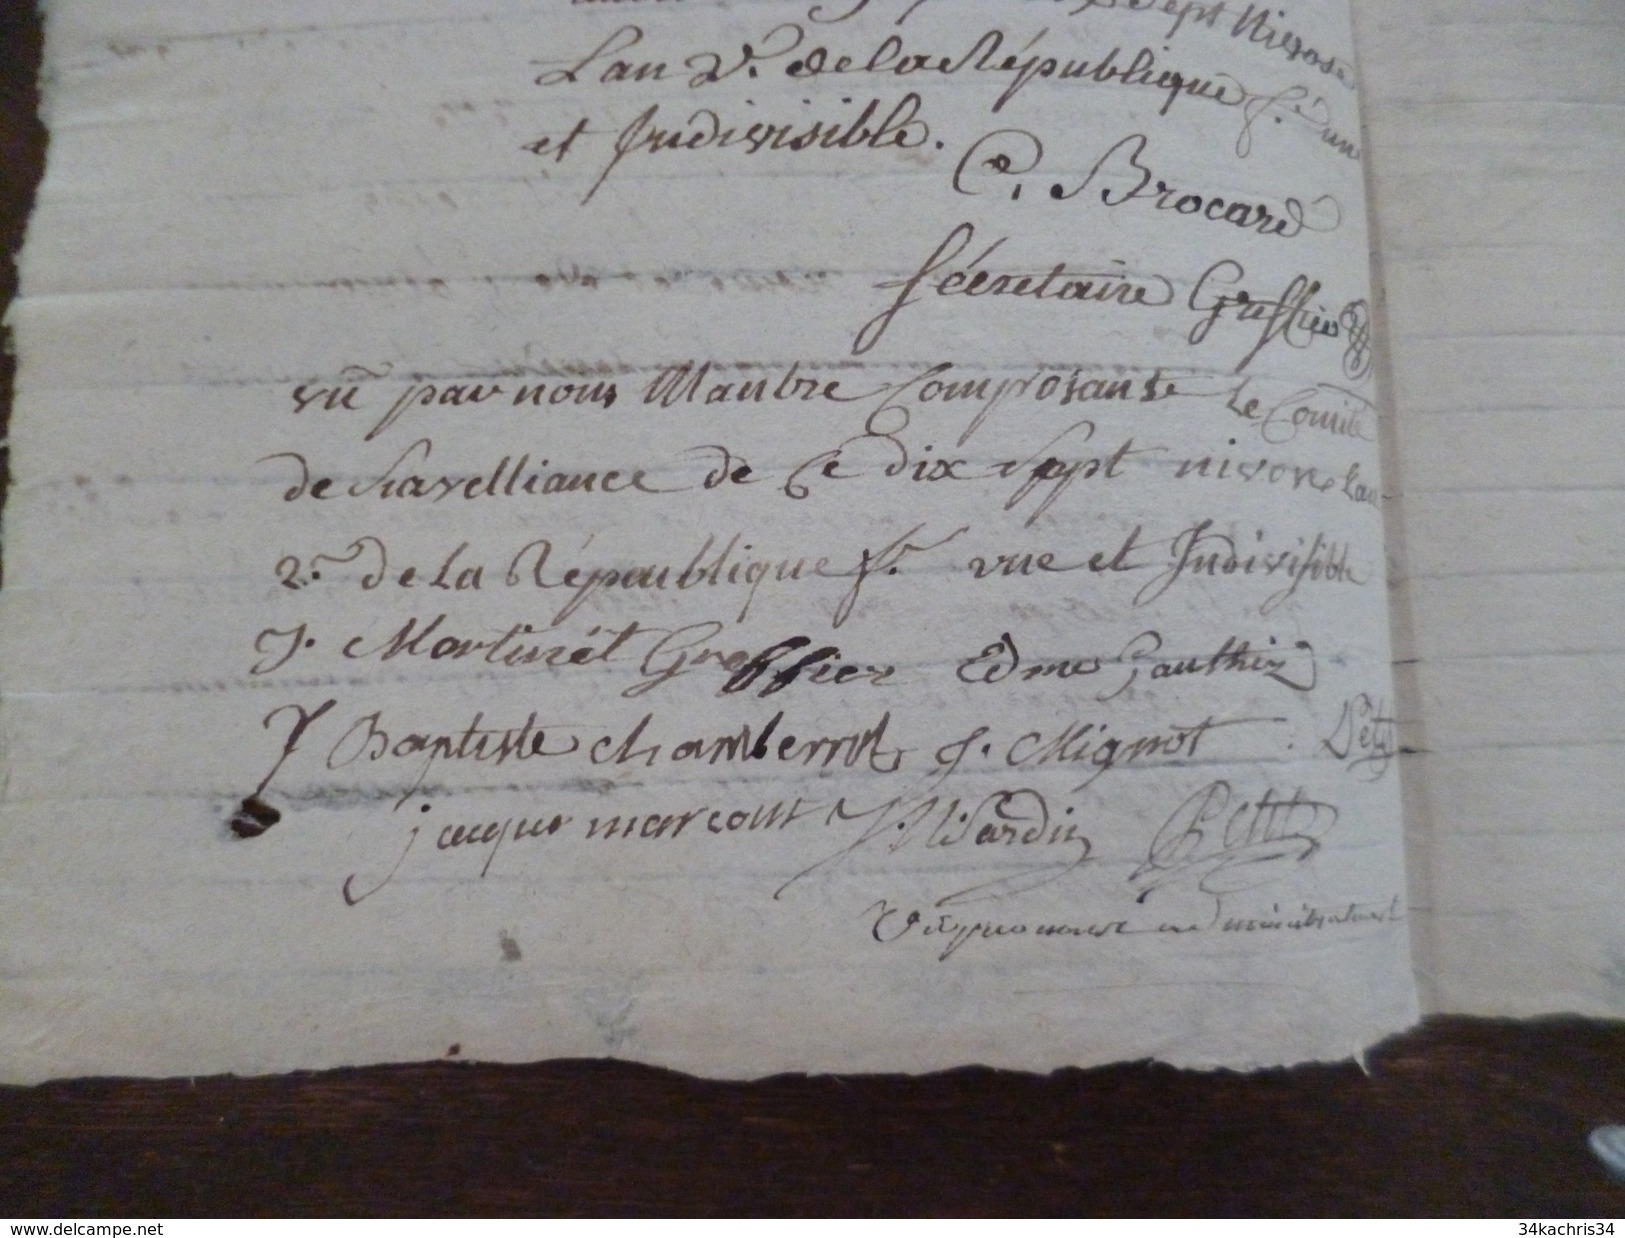 Sept Nivose
Lan 2.e de la République f.e une
et Indivisible.
C. Brocard
Sécretaire Greffier
vû par nous Manbre Composants Le Comité
de Survelliance de Ce dix Sept nivose Lan
2.e de la République f.e vne et Indivisible
J. Martinét Greffier Edme Gauthier
J Baptiste chamberrot J. Mignot Petit
jacque marcout Jardin Petit
www.delcampe.net
34kachris34